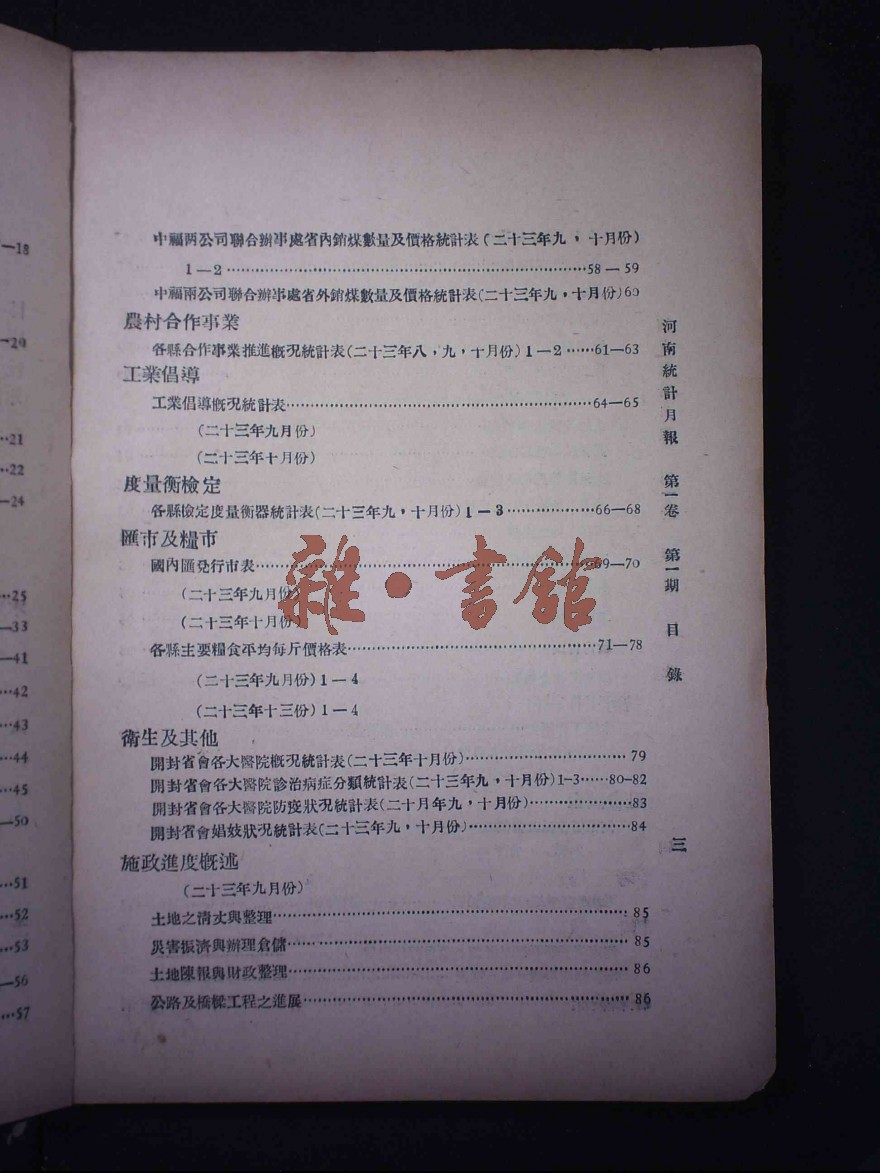 中福两公司聯合辦事處省內銷煤數量及價格統計表(二十三年九，十月份)
1—2……58—59
中福兩公司聯合辦事處省外銷煤數量及價格統計表(二十三年九，十月份)60
農村合作事業
各縣合作事業推進概況統計表(二十三年八，九，十月份)1—2……61—63
工業倡導
工業倡導概況統計表……64—65
(二十三年九月份)
(二十三年十月份)
度量衡檢定
各縣檢定度量衡器統計表(二十三年九，十月份)1—3……66—68
匯市及糧市
國內匯兌行市表……69—70
(二十三年九月份)
(二十三年十月份)
各縣主要糧食平均每斤價格表……71—78
(二十三年九月份)1—4
(二十三年十三份)1—4
衛生及其他
開封省會各大醫院概况統計表(二十三年十月份)……79
開封省會各大醫院診治病症分類統計表(二十三年九，十月份)1-3……80-82
開封省會各大醫院防疫狀况統計表(二十月年九，十月份)……83
開封省會娼妓狀况統計表(二十三年九，十月份)……84
施政進度概述
(二十三年九月份)
土地之清丈與整理……85
災害振濟與辦理倉儲……85
土地陳報與財政整理……86
公路及橋樑工程之進展……86
河南統計月報 第一卷 第一期 目錄
三
雜·書館
—18
—20
…21
…22
—24
…25
—33
—41
…42
…43
…44
…45
—50
…51
…52
…53
—56
…57